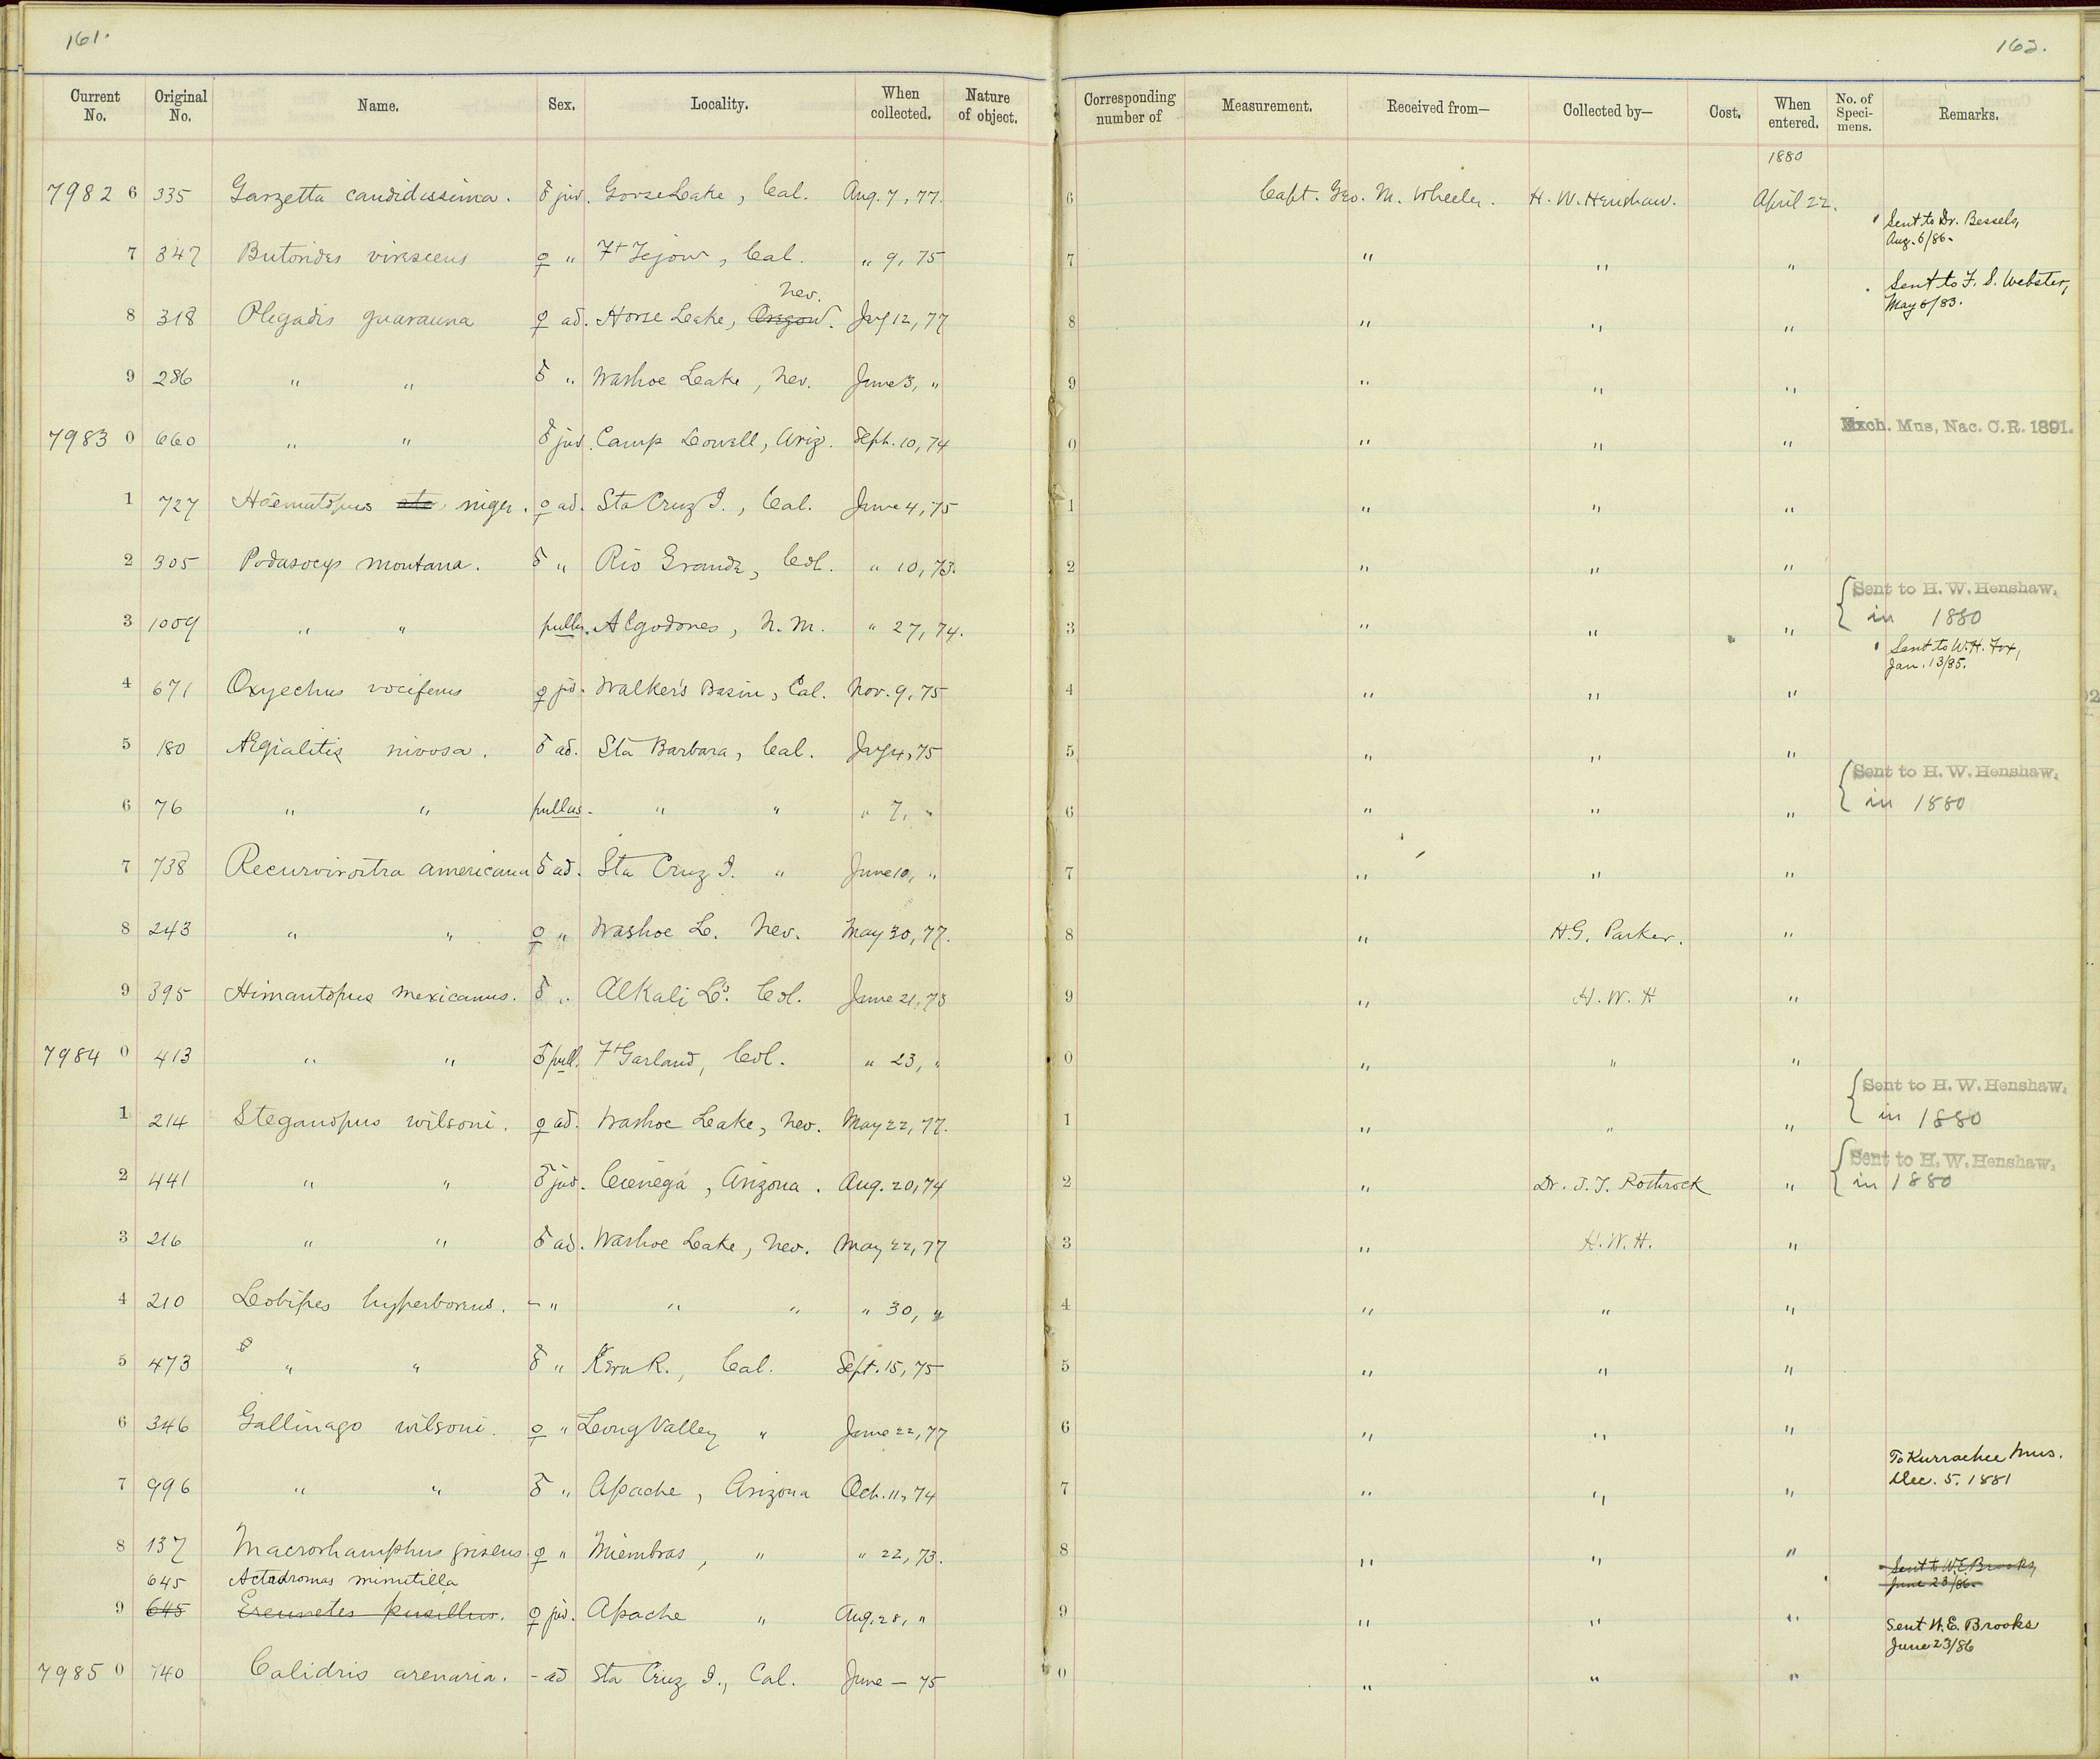 161.
162.
Current No. Original No. Name. Sex. Locality. When collected. Nature of object. Corresponding number of Measurement. Received from— Collected by— Cost. When entered. No. of Specimens. Remarks.
1880
7982 6 335 Garzetta candidissima. ♂ juv. Goose Lake, Cal. Aug. 7, 77. 6 Capt. Geo. M. Wheeler. H. W. Henshaw. April 22.
Sent to Dr. Bessels,
Aug. 6/86.
7 347 Butorides virescens ♀ " Ft Tejon, Cal. " 9, 75 7 " " "
Sent to F. S. Webster,
May 6/83.
Nev.
8 318 Plegadis guarauna ♀ ad. Horse Lake, Oregon. July 12, 77 8 " " "
9 286 " " ♂ " Washoe Lake, Nev. June 3, " 9 " " "
7983 0 660 " " ♂ juv. Camp Lowell, Ariz. Sept. 10, 74 0 " " " Exch. Mus. Nac. C.R. 1891.
1 727 Haematopus ata niger. ♀ ad. Sta Cruz I., Cal. June 4, 75 1 " " "
2 305 Podasocys montana. ♂ " Rio Grande, Col. " 10, 73. 2 " " "
Sent to H. W. Henshaw.
in 1880
3 1009 " " pullus. Algodones, N. M. " 27, 74. 3 " " "
Sent to W. H. Fox,
Jan. 13/85.
4 671 Oxyechus vociferus ♀ juv. Walker's Basin, Cal. Nov. 9, 75 4 " " "
5 180 Ægialitis nivosa. ♂ ad. Sta Barbara, Cal. July 4, 75 5 " " "
Sent to H. W. Henshaw.
in 1880
6 76 " " pullus. " " " 7, " 6 " " "
7 738 Recurvirostra americana ♂ ad. Sta Cruz I. " June 10, " 7 " " "
8 243 " " ♀ " Washoe L. Nev. May 30, 77. 8 " H.G. Parker. "
9 395 Himantopus mexicanus. ♂ " Alkali Ls. Col. June 21, 73 9 " H. W. H "
7984 0 413 " " ♂ pull. Ft Garland, Col. " 23, " 0 " " "
Sent to H. W. Henshaw.
in 1880
1 214 Steganopus wilsoni. ♀ ad. Washoe Lake, Nev. May 22, 77. 1 " " "
Sent to H. W. Henshaw.
in 1880
2 441 " " ♂ juv. Cienega, Arizona. Aug. 20, 74 2 " Dr. J. T. Rothrock "
3 216 " " ♂ ad. Washoe Lake, Nev. May 22, 77 3 " H. W. H. "
4 210 Lobipes hyperboreus. - " " " " 30, " 4 " " "
5 473 " " ♂ " Kern R., Cal. Sept. 15, 75 5 " " "
6 346 Gallinago wilsoni. ♀ " Long Valley " June 22, 77 6 " " "
To Kurrachee Mus.
Dec. 5. 1881
7 996 " " ♂ " Apache, Arizona Oct. 11, 74 7 " " "
8 137 Macrorhamphus griseus. ♀ " Miembras, " " 22, 73. 8 " " "
Sent to W.E. Brooks,
June 23/86.
645 Actodromas minutilla
9 645 Ereunetes pusillus. ♀ juv. Apache " Aug. 28, " 9 " " "
Sent W. E. Brooks
June 23/86
7985 0 740 Calidris arenaria. - ad Sta Cruz I., Cal. June — 75 0 " " "